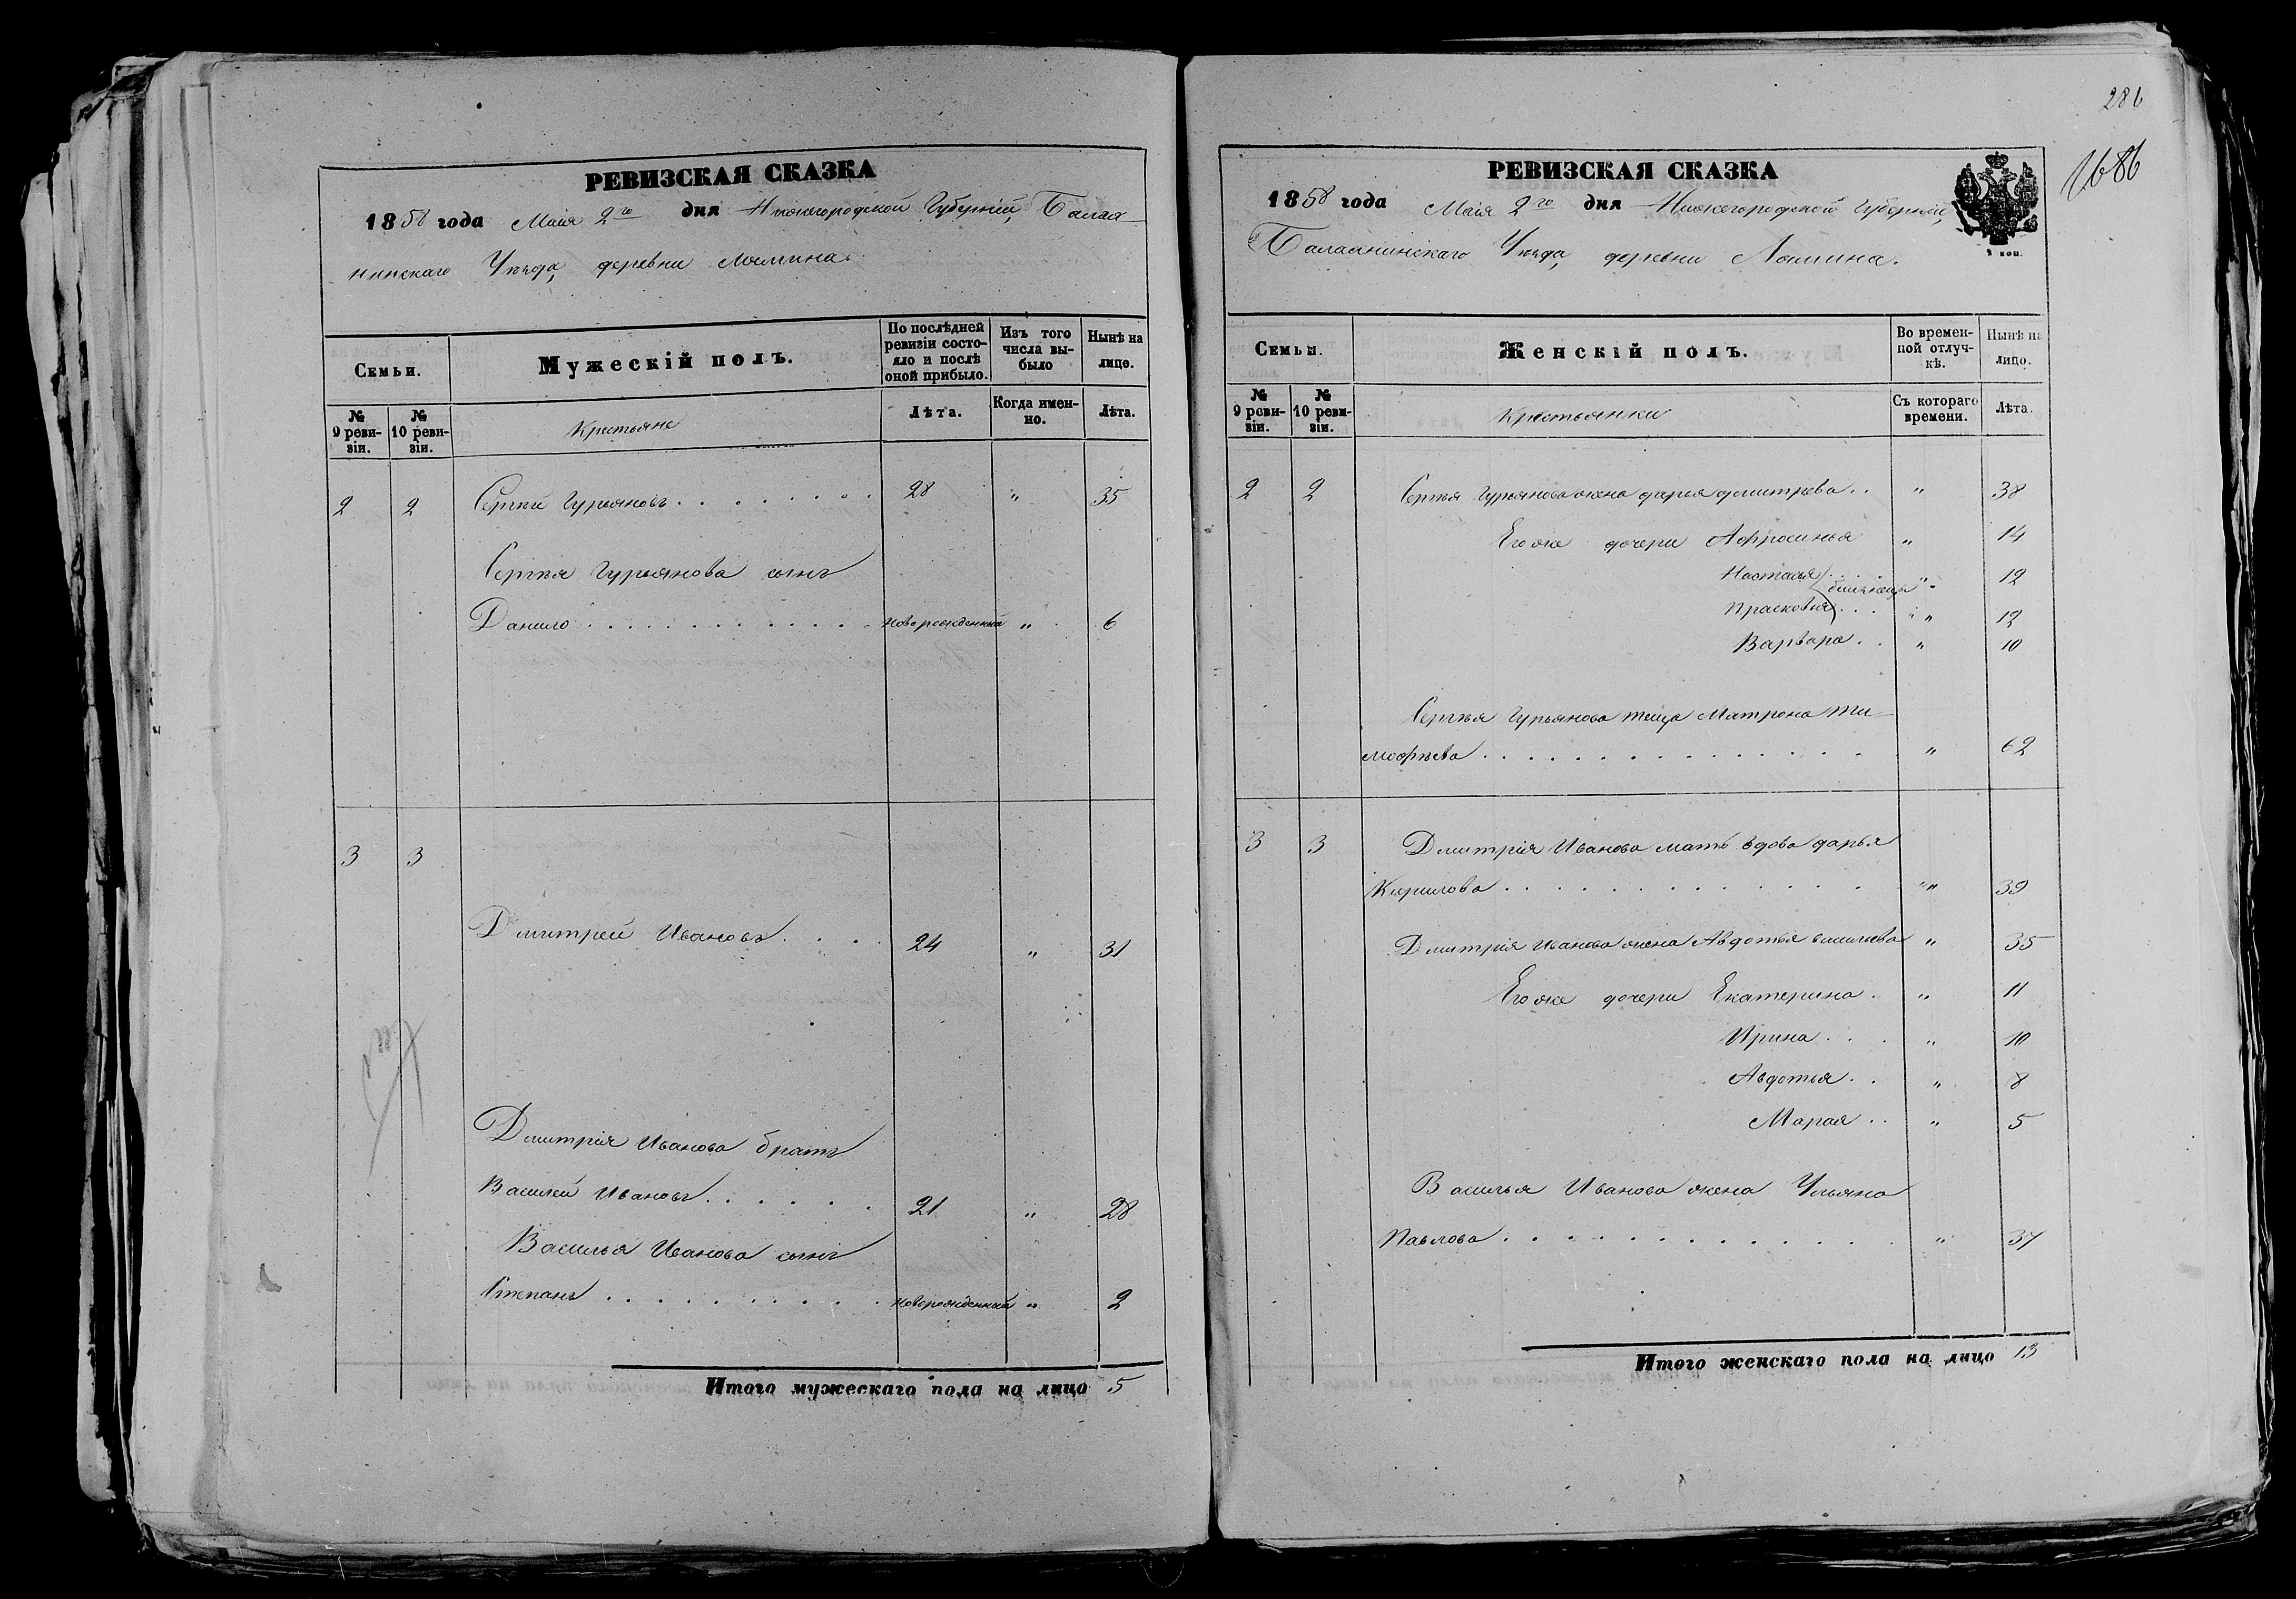 РЕВИЗСКАЯ СКАЗКА
1858 года Маія 2го дня Нижегородской Губерніи, Балах-
нинскаго Уѣзда, деревни Лямина.
Семьи.
Мужескій полъ.
По послѣдней ревизіи состояло и послѣ оной прибыло.
Изъ того числа выбыло
Нынѣ на лицо.
№ 9 ревизіи.
№ 10 ревизіи.
Крестьяне
Лѣта.
Когда именно.
Лѣта.
2 2 Сергѣй Гурьяновъ . . . . . . . 28 " 35
Сергѣя Гурьянова сынъ
Данило . . . . . . . . . . . новорожденный " 6
3 3
Дмитрей Ивановъ . . . . 24 " 31
Дмитрія Иванова братъ
Василей Ивановъ . . . . . . 21 " 28
Василья Иванова сынъ
Степанъ . . . . . . . . . . новорожденный " 2
Итого мужескаго пола на лицо 5
286
1686
РЕВИЗСКАЯ СКАЗКА
1858 года Маія 2го дня Нижегородской Губерніи,
Балахнинскаго Уѣзда, деревни Лямина.
2 коп.
Семьи.
Женскій полъ.
Во временной отлучкѣ.
Нынѣ на лицо.
№ 9 ревизіи.
№ 10 ревизіи.
Крестьянки
Съ котораго времени.
Лѣта.
2 2 Сергѣя Гурьянова жена дарья дмитрева . . " 38
Его же дочери Афросинья " 14
Настасья . . " 12
близнецы
Прасковья . . . " 12
Варвара . . " 10
Сергѣя Гурьянова теща Матрена Ти-
мофѣева . . . . . . . . . . . . . . " 62
3 3 Дмитрія Иванова мать вдова дарья
Кирилова . . . . . . . . . . . . . " 59
Дмитрія Иванова жена Авдотья васильева " 35
Его же дочери Екатерина . " 11
Ирина . . . " 10
Авдотья . . " 8
Марая . . " 5
Василья Иванова жена Ульяна
Павлова . . . . . . . . . . . . . " 37
Итого женскаго пола на лицо 13